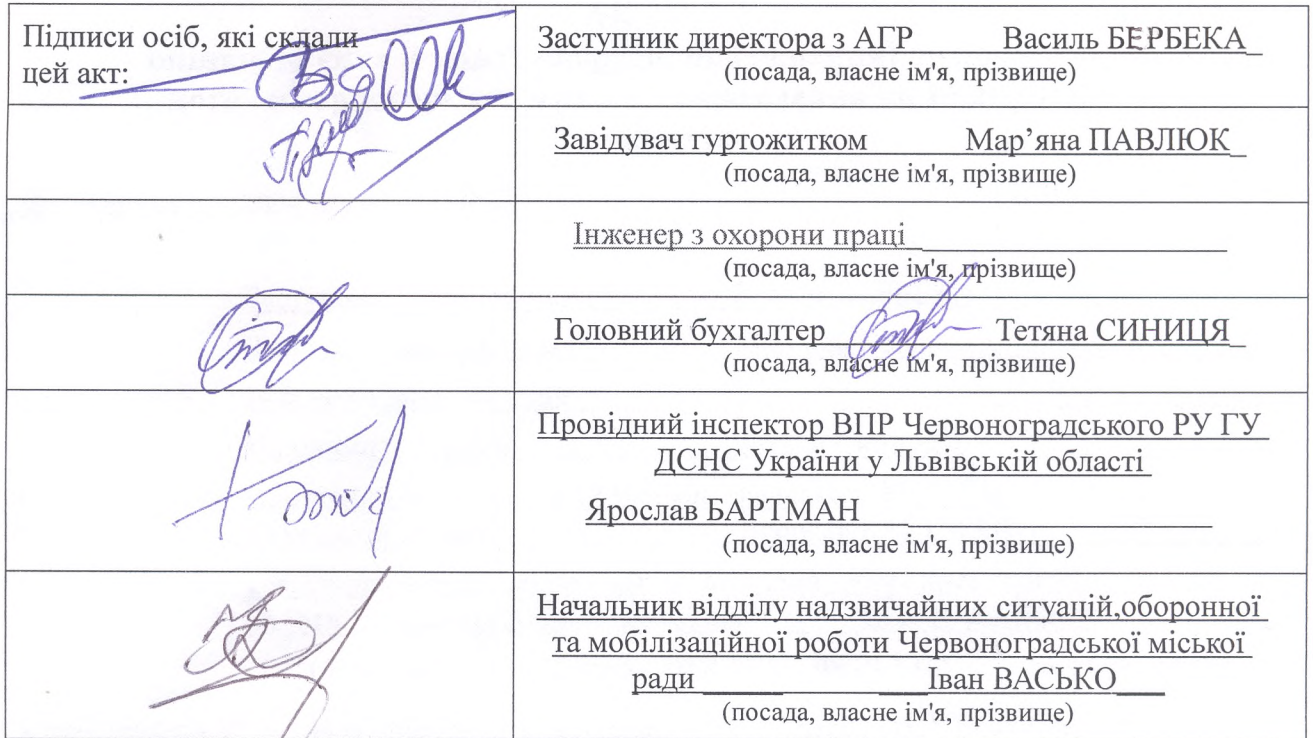 Підписи осіб, які склали
цей акт:
Заступник директора з АГР Василь БЕРБЕКА_
(посада, власне ім'я, прізвище)
Завідувач гуртожитком Мар’яна ПАВЛЮК_
(посада, власне ім'я, прізвище)
Інженер з охорони праці
(посада, власне ім'я, прізвище)
Головний бухгалтер Тетяна СИНИЦЯ_
(посада, власне ім'я, прізвище)
Провідний інспектор ВПР Червоноградського РУ ГУ
ДСНС України у Львівській області
Ярослав БАРТМАН
(посада, власне ім'я, прізвище)
Начальник відділу надзвичайних ситуацій,оборонної
та мобілізаційної роботи Червоноградської міської
ради Іван ВАСЬКО
(посада, власне ім'я, прізвище)